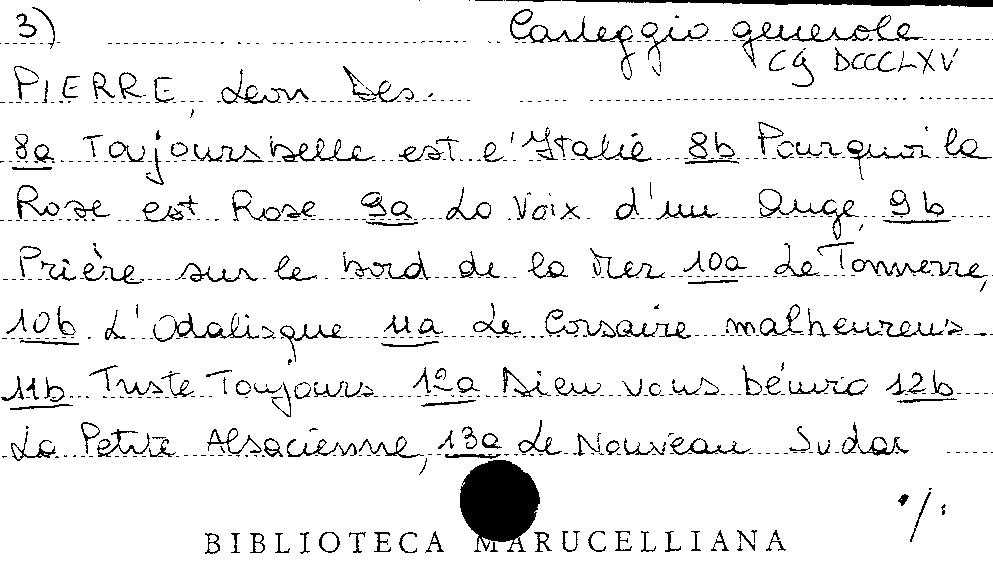 3) Carteggio generale
CG DCCCLXV
PIERRE, Leon Des.
8a Toujours belle est l'Italie 8b Pourquoi la
Rose est Rose 9a La Voix d'un Ange, 9b
Prière sur le bord de la Mer 10a Le Tonnerre,
10b L'Odalisque 11a Le Corsaire malheureus
11b Triste Toujours 12a Dieu vous bénira 12b
La Petite Alsacienne, 13a Le Nouveau Sudar
./.
BIBLIOTECA MARUCELLIANA